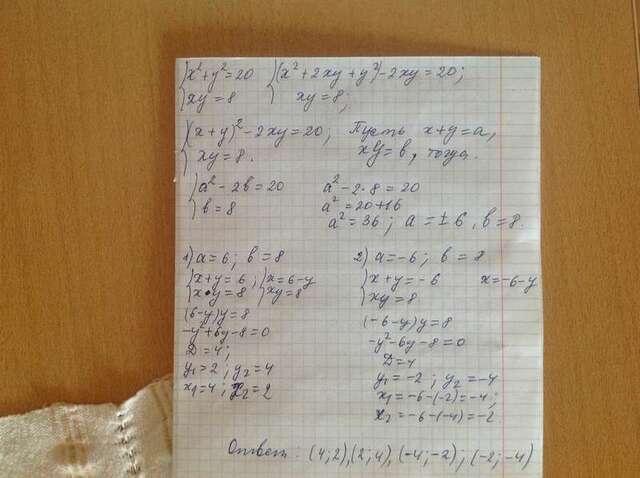 x²+y²=20 (x²+2xy+y²)-2xy=20;
xy=8 xy=8;
(x+y)²-2xy=20; Пусть x+y=a,
xy=8. xy=b, тогда
a²-2b=20 a²-2·8=20
b=8 a²=20+16
a²=36; a=±6, b=8.
1) a=6; b=8 2) a=-6; b=8
x+y=6 x=6-y x+y=-6 x=-6-y
x·y=8 xy=8 xy=8
(6-y)y=8 (-6-y)y=8
-y²+6y-8=0 -y²-6y-8=0
D=4; D=4
y₁=2; y₂=4 y₁=-2; y₂=-4
x₁=4; x₂=2 x₁=-6-(-2)=-4;
x₂=-6-(-4)=-2
Ответ: (4;2),(2;4),(-4;-2);(-2;-4)